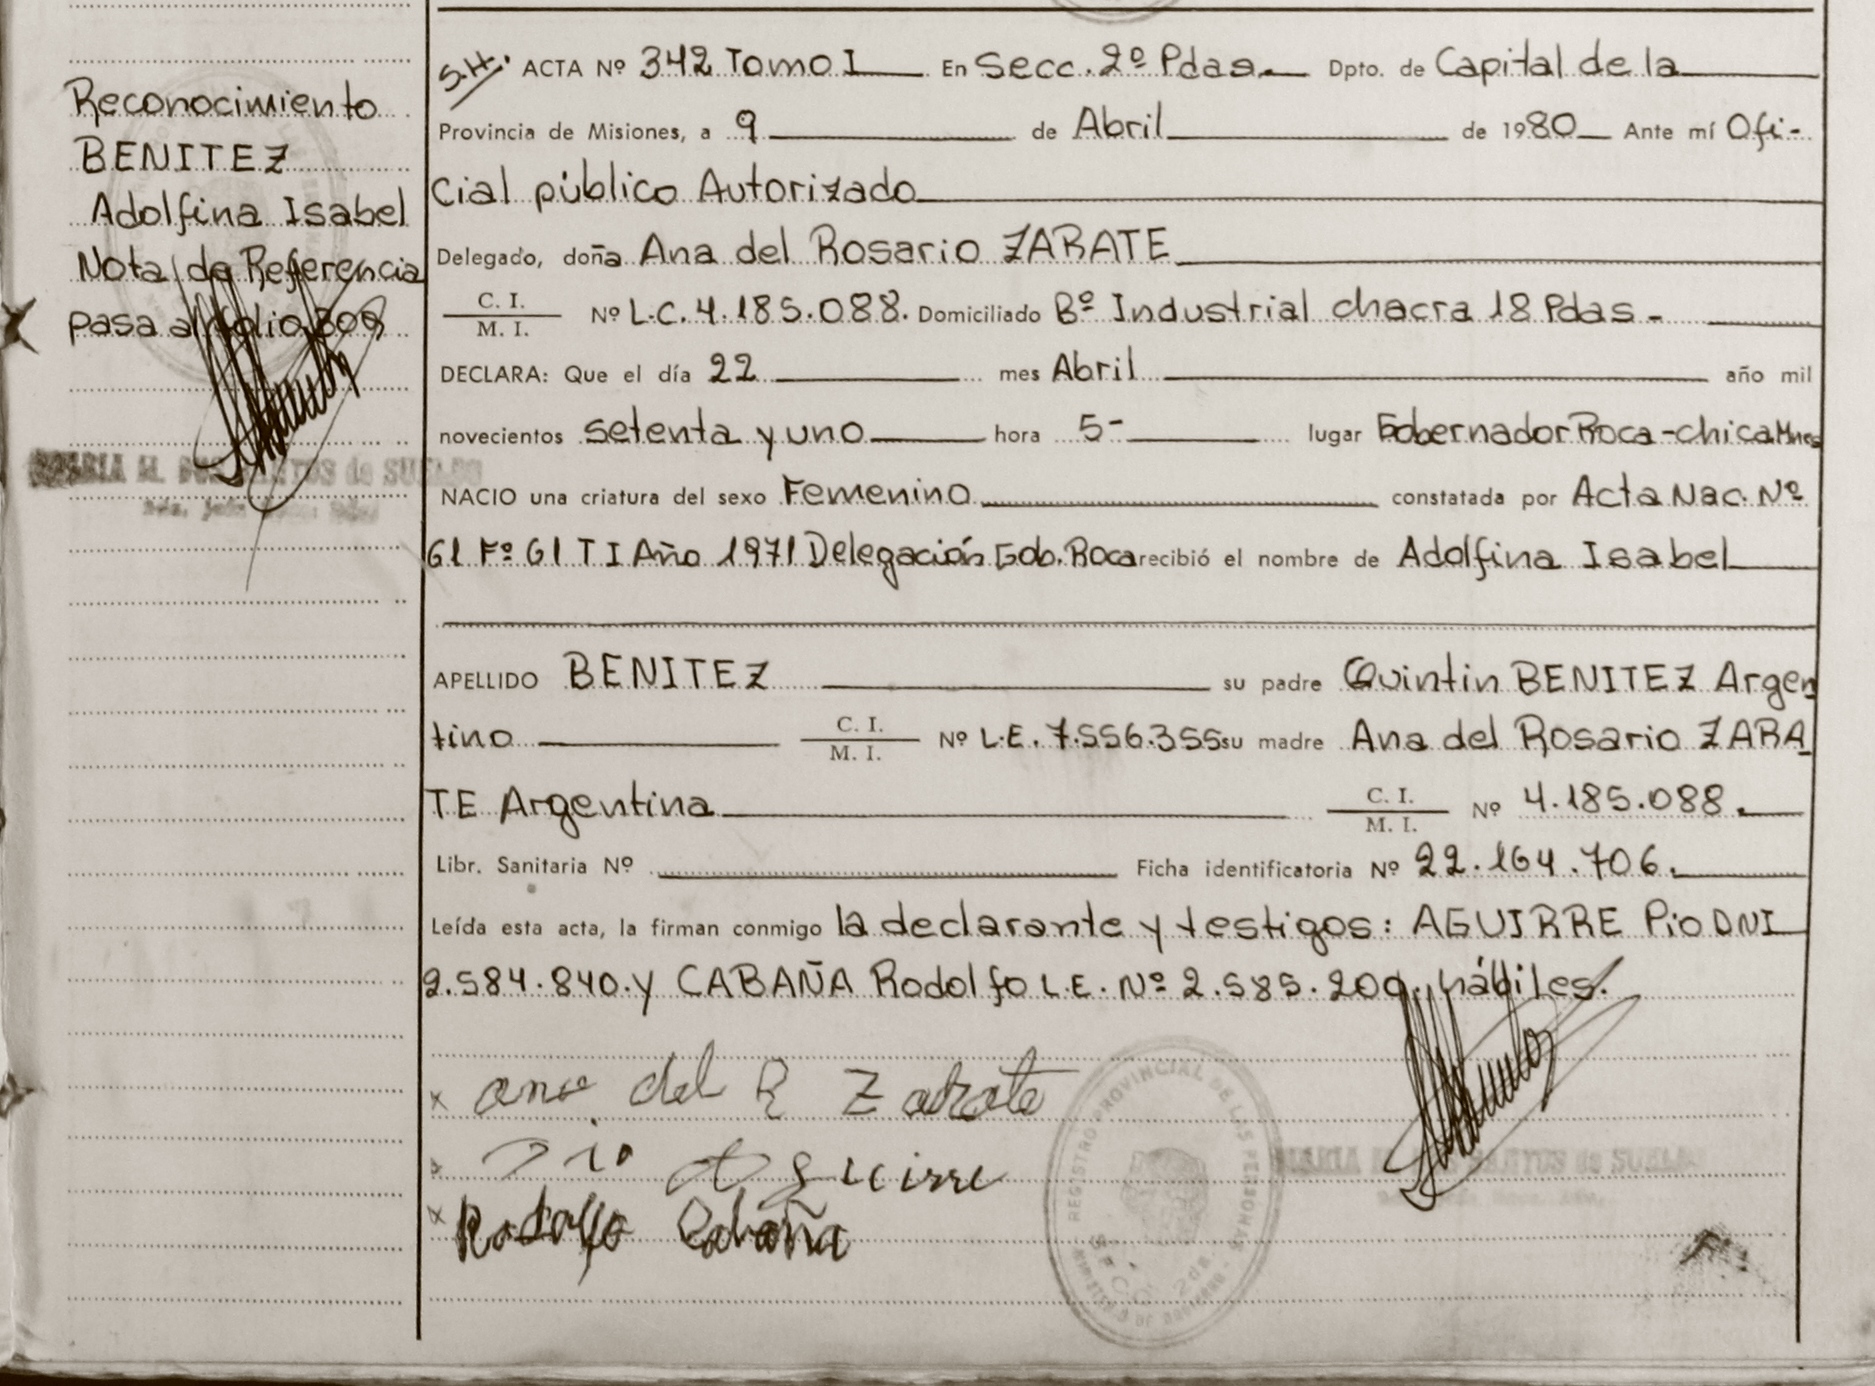 Reconocimiento
BENITEZ
Adolfina Isabel
Nota de Referencia
pasa al folio 309
S.H. ACTA Nº 342 Tomo I En Secc. 2º Pdas. Dpto. de Capital de la
Provincia de Misiones, a 9 de Abril de 1980 Ante mí Ofi-
cial público Autorizado
Delegado, doña Ana del Rosario ZARATE
C. I.
M. I. Nº L.C. 4.185.088. Domiciliado Bº Industrial chacra 18 Pdas-
DECLARA: Que el día 22 mes Abril año mil
novecientos setenta y uno hora 5- lugar Gobernador Roca-chica Mnes
NACIO una criatura del sexo Femenino constatada por Acta Nac. Nº
61 Fº 61 T I Año 1971 Delegación Gob. Roca recibió el nombre de Adolfina Isabel
APELLIDO BENITEZ su padre Quintin BENITEZ Argen
tino C. I.
M. I. Nº L.E. 7.556.355 su madre Ana del Rosario ZARA
TE Argentina C. I.
M. I. Nº 4.185.088.
Libr. Sanitaria Nº Ficha identificatoria Nº 22.164.706.
Leída esta acta, la firman conmigo la declarante y testigos: AGUIRRE Pio DNI
2.584.840. y CABAÑA Rodolfo L.E. Nº 2.585.209. hábiles.
x ana del R Zarate
x Pio Aguirre
x Rodolfo Cabaña
REGISTRO PROVINCIAL DE LAS PERSONAS
SECC. 2da.
MARIA SANTOS de SUELDO